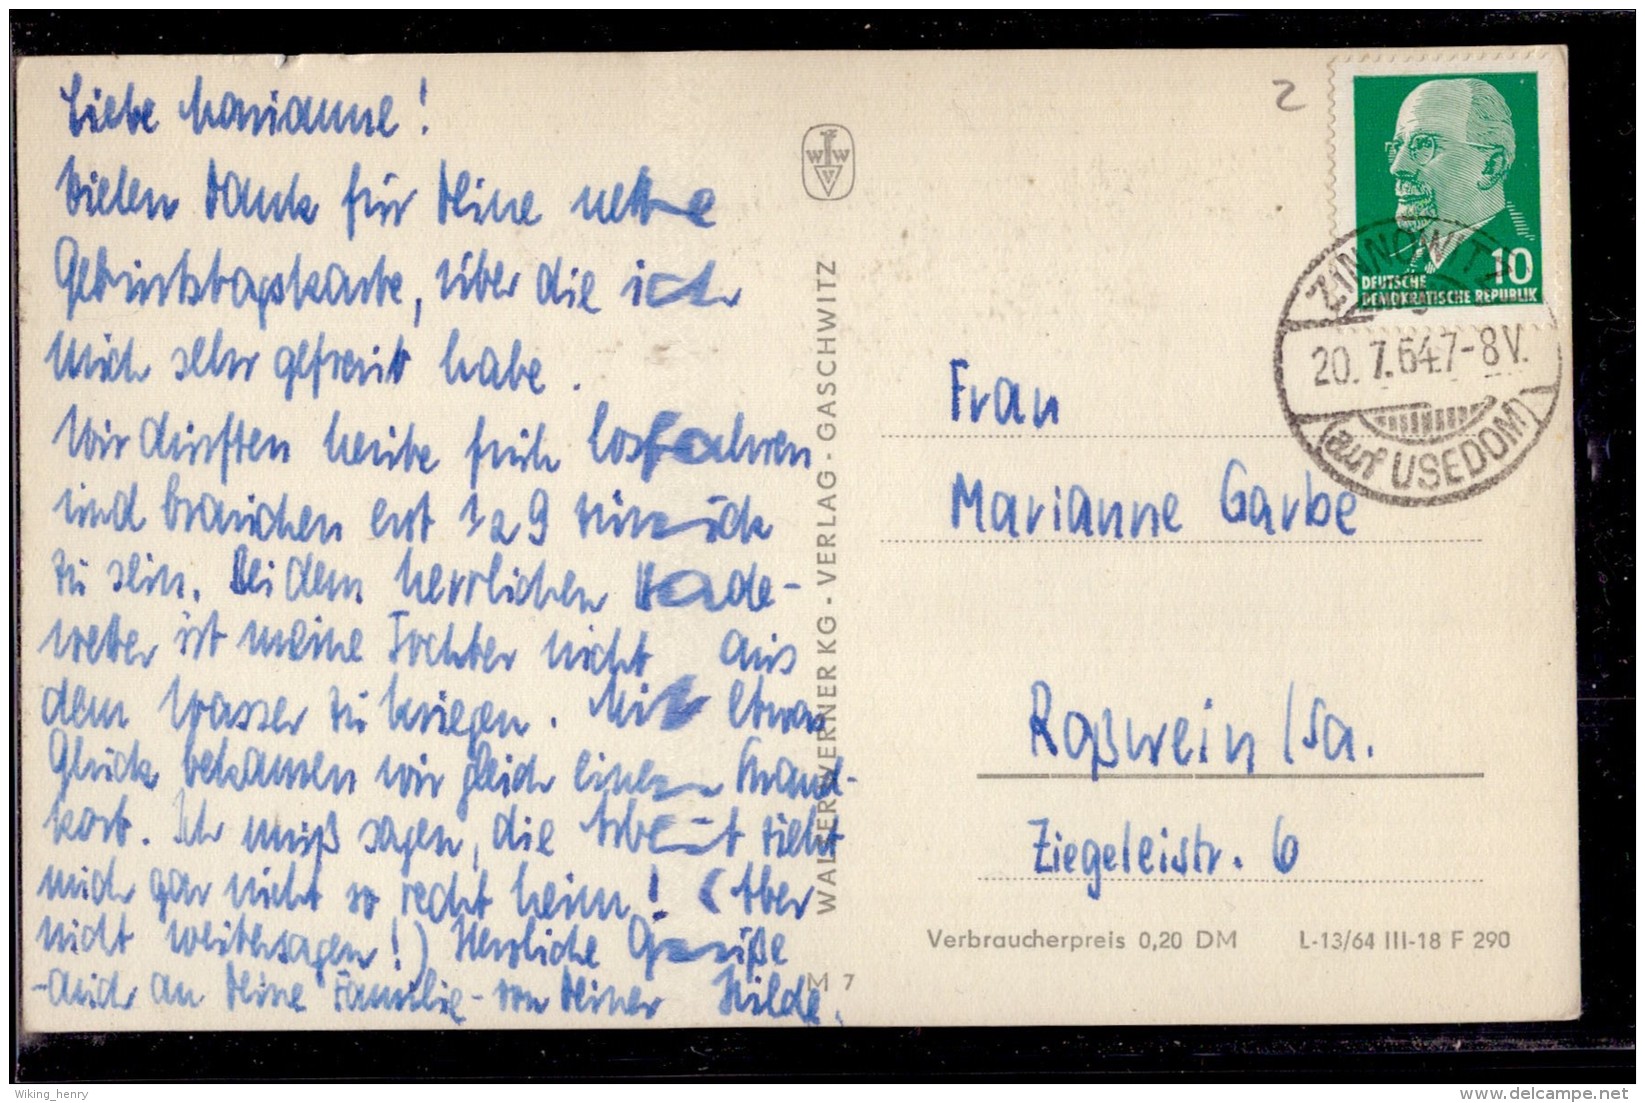 Liebe Marianne!
Vielen Dank für Deine nette
Geburtstagskarte, über die ich
mich sehr gefreut habe.
Wir durften heute früh losfahren
und brauchen erst ½ 9 zurück
zu sein. Bei dem herrlichen Bade-
wetter ist meine Tochter nicht aus
dem Wasser zu kriegen. Mit etwas
Glück bekamen wir gleich einen Strand-
korb. Ich muß sagen, die Arbeit zieht
mich gar nicht so recht heim! (Aber
nicht weitersagen!) Herzliche Grüße
- auch an Deine Familie - von Deiner Hilde.
WVW
WALTER WERNER KG · VERLAG · GASCHWITZ
M 7
2
10
DEUTSCHE
DEMOKRATISCHE REPUBLIK
ZINNOWITZ
20.7.64.7-8V.
(auf USEDOM)
Frau
Marianne Garbe
Roßwein /Sa.
Ziegeleistr. 6
Verbraucherpreis 0,20 DM L-13/64 III-18 F 290
Wiking_henry
delcampe.net